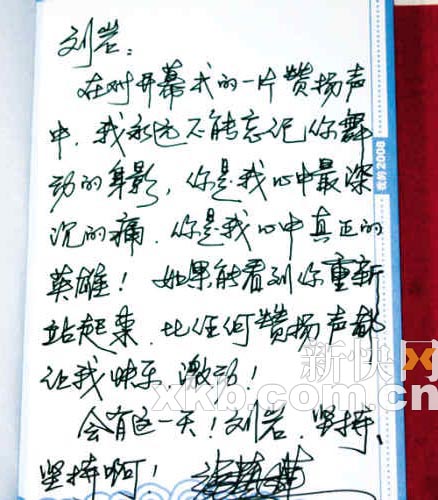 刘岩:
在对开幕式的一片赞扬声
中,我永远不能忘记你舞
动的身影,你是我心中最深
沉的痛.你是我心中真正的
英雄!如果能看到你重新
站起来.比任何赞扬声都
让我快乐、激动!
会有这一天!刘岩.坚持、
坚持啊!
北京2008
新快网
xkb.com.cn